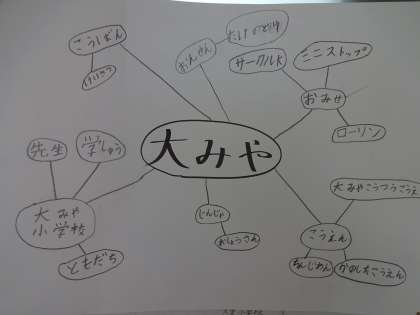 こうばん
けいさつ
おんせん
サークルK
ミニストップ
おみせ
ローソン
大みや
先生
学しゅう
大みや
小学校
ともだち
じんじゃ
おしょうさん
こうえん
大みやこうつうこうえん